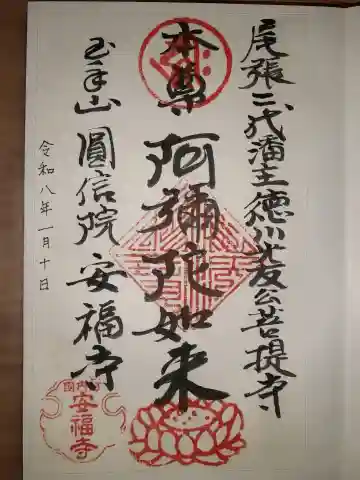 尾張二代藩主徳川光友公菩提寺
本尊
阿彌陀如来
玉手山
圓信院
安福寺
令和八年一月十日
安福寺